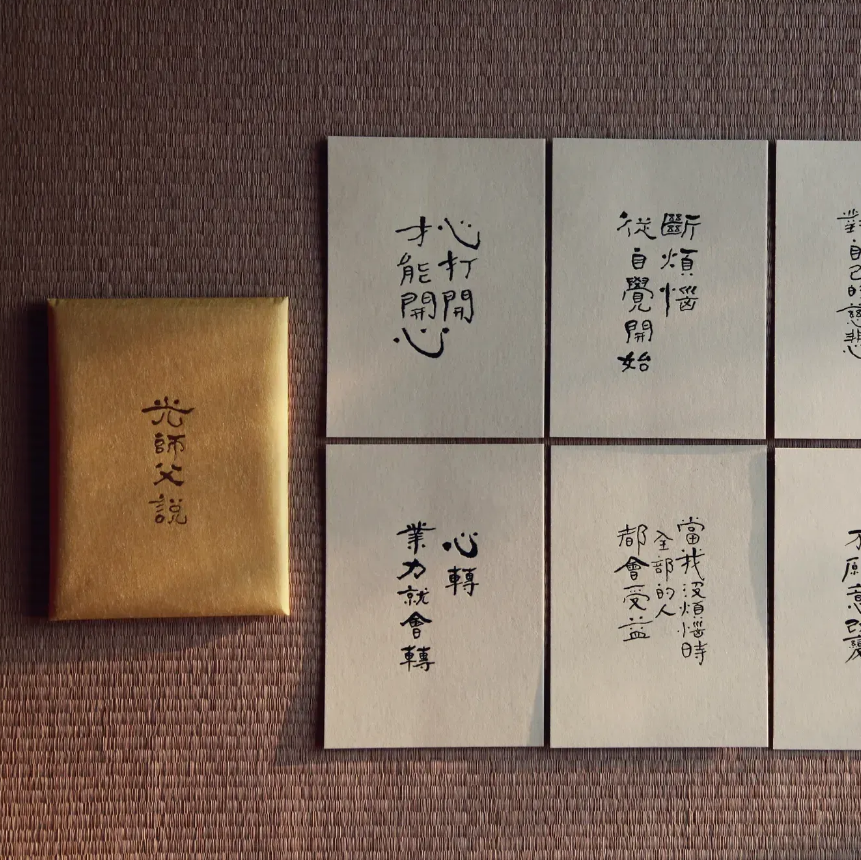 光師父說
心打開
才能開心
斷煩惱
從自覺開始
對自己的慈悲
心轉
業力就會轉
當我沒煩惱時
全部的人
都會受益
不願意改變